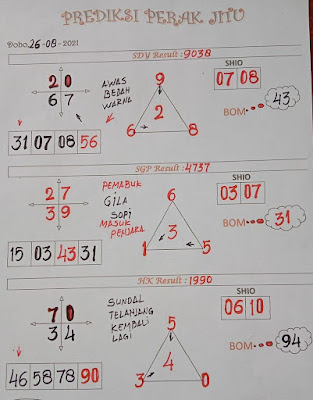 PREDIKSI PERAK JITU
Dobo, 26-08-2021
SDY Result : 9038
2 0
6 7
AWAS
BEDAH
WARNA
9
2
6 8
SHIO
07 08
BOM 43
31 07 08 56
SGP Result : 4737
2 7
3 9
PEMABUK
GILA
SOPI
MASUK
PENJARA
6
3
1 5
SHIO
03 07
BOM 31
15 03 43 31
HK Result : 1990
7 0
3 4
SUNDAL
TELANJANG
KEMBALI
LAGI
5
4
3 0
SHIO
06 10
BOM 94
46 58 78 90